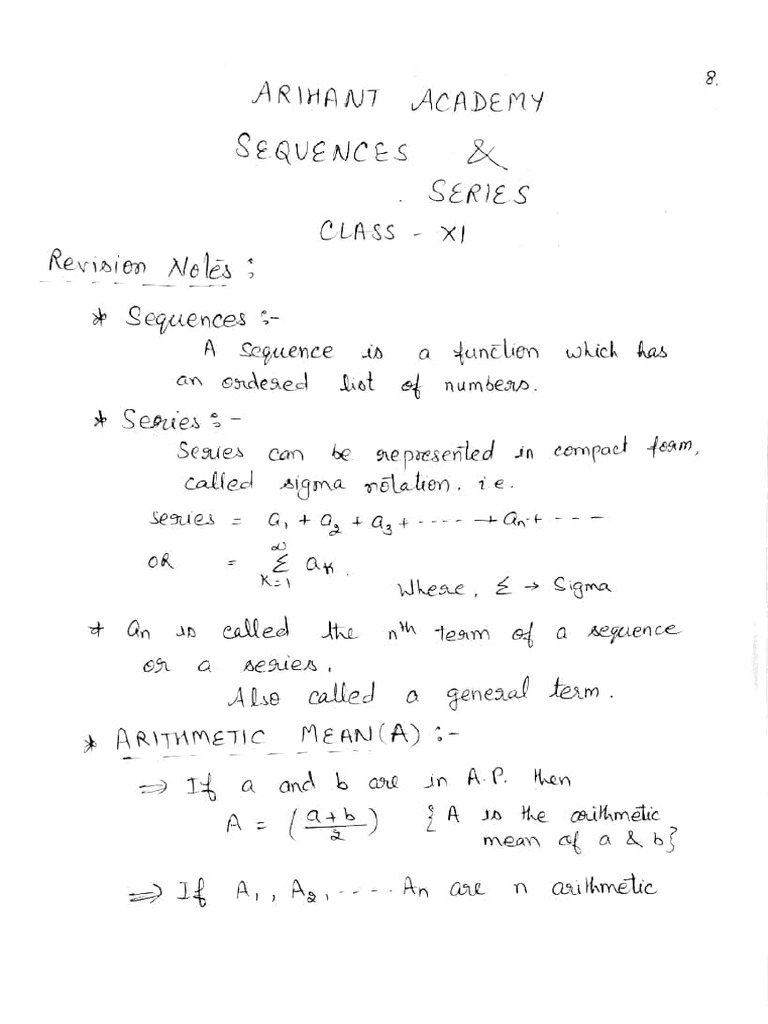 8.
ARIHANT ACADEMY
SEQUENCES &
SERIES
CLASS - XI
Revision Notes :
* Sequences :-
A sequence is a function which has
an ordered list of numbers.
* Series :-
Series can be represented in compact form,
called sigma notation. i e.
series = a₁ + a₂ + a₃ + ---- + an + ---
OR = ∞ Σ K=1 aK.
Where, Σ → Sigma
* an is called the nth term of a sequence
or a series.
Also called a general term.
* ARITHMETIC MEAN(A) :-
⇒ If a and b are in A.P. then
A = (a+b/2) {A is the arithmetic
mean of a & b}
⇒ If A₁, A₂, ---- An are n arithmetic